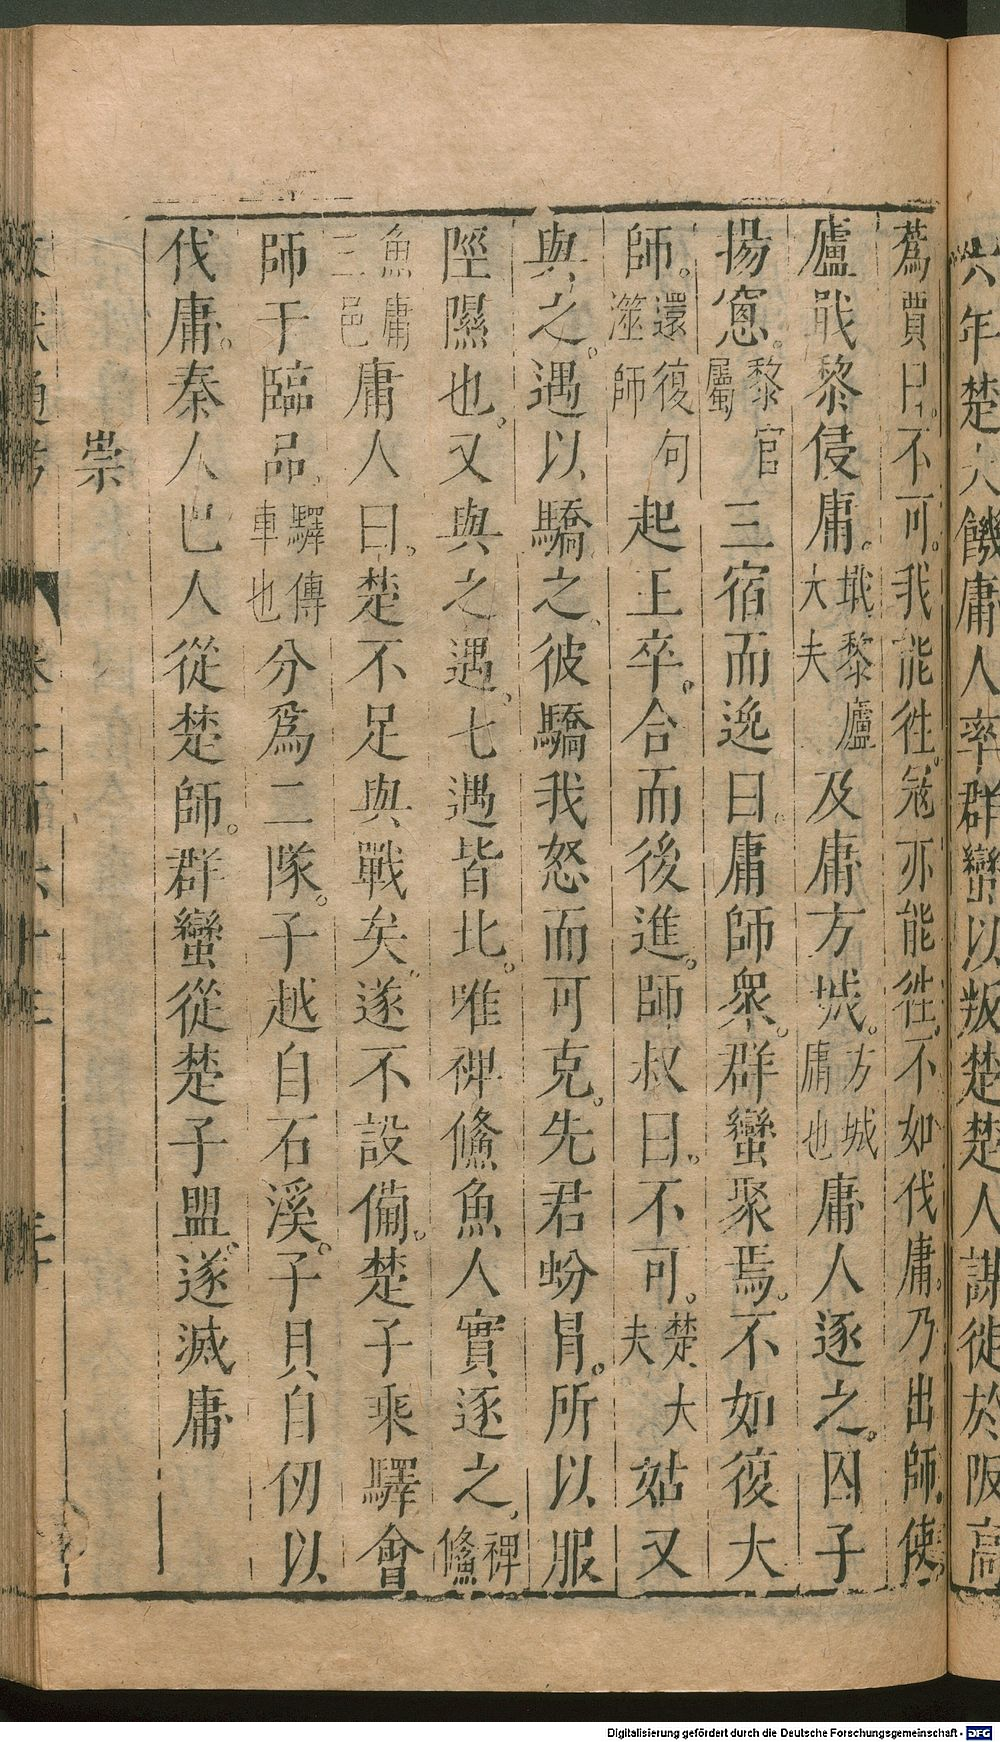 六年楚大饑庸人率群蠻以叛楚楚人謀徙於阪高
蒍賈曰不可。我能徃。冦亦能徃。不如伐庸。乃出師。使
廬戢黎侵庸。戢黎廬大夫及庸方城。方城庸也庸人逐之。囚子
揚窻。黎官屬三宿而逸曰。庸師衆。群蠻聚焉。不如復大
師。還復句澨師起王卒。合而後進。師叔曰。不可。楚大夫姑又
與之。遇以驕之。彼驕我怒而可克。先君蚡冒。所以服
陘隰也。又與之遇。七遇皆北。唯裨鯈魚人實逐之。裨鯈
魚庸三邑庸人曰。楚不足與戰矣。遂不設備。楚子乘驛會
師于臨品。驛傳車也分爲二隊。子越自石溪。子貝自仞以
伐庸。秦人巴人從楚師。群蠻從楚子盟。遂滅庸
崇
Digitalisierung gefördert durch die Deutsche Forschungsgemeinschaft - DFG